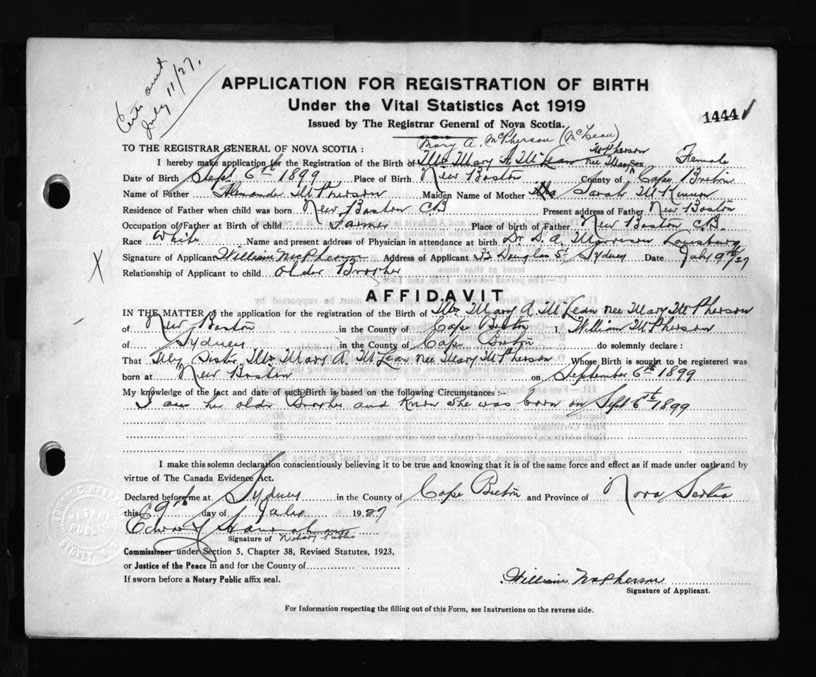 Cert sent
July 11/27.
APPLICATION FOR REGISTRATION OF BIRTH
Under the Vital Statistics Act 1919
1444
Issued by The Registrar General of Nova Scotia.
Mary A. McPherson (McLean)
TO THE REGISTRAR GENERAL OF NOVA SCOTIA: McPherson
I hereby make application for the Registration of the Birth of Mrs Mary A. McLean nee Mary Sex Female
Date of Birth Sept 6th 1899 Place of Birth New Boston County of Cape Breton
Name of Father Alexander McPherson Maiden Name of Mother Sarah McKinnon
Residence of Father when child was born New Boston C.B. Present address of Father New Boston
Occupation of Father at Birth of child Farmer Place of birth of Father New Boston C.B.
Race White Name and present address of Physician in attendance at birth Dr. D. A. Morrison Louisburg
Signature of Applicant William McPherson Address of Applicant Douglas St Sydney Date July 9th/27
X
Relationship of Applicant to child Older Brother
AFFIDAVIT
IN THE MATTER of the application for the registration of Birth of Mrs Mary A. McLean nee Mary McPherson
of New Boston in the County of Cape Breton I, William McPherson
of Sydney in the County of Cape Breton do solemnly declare:
That My Sister Mrs Mary A. McLean nee Mary McPherson Whose Birth is sought to be registered was
born at New Boston on September 6th 1899
My knowledge of the fact and date of such Birth is based on the following Circumstances:-
I am her older Brother and know she was born on Sept 6th 1899
I make this solemn declaration conscientiously believing it to be true and knowing that it is of the same force and effect as if made under oath and by
virtue of The Canada Evidence Act.
Declared before me at Sydney in the County of Cape Breton and Province of Nova Scotia
this 9th day of July 1927
Signature of Notary Public
Commissioner under Section 5, Chapter 38, Revised Statutes, 1923,
or Justice of the Peace in and for the County of
If sworn before a Notary Public affix seal.
William McPherson
Signature of Applicant.
For Information respecting the filling out of this Form, see Instructions on the reverse side.